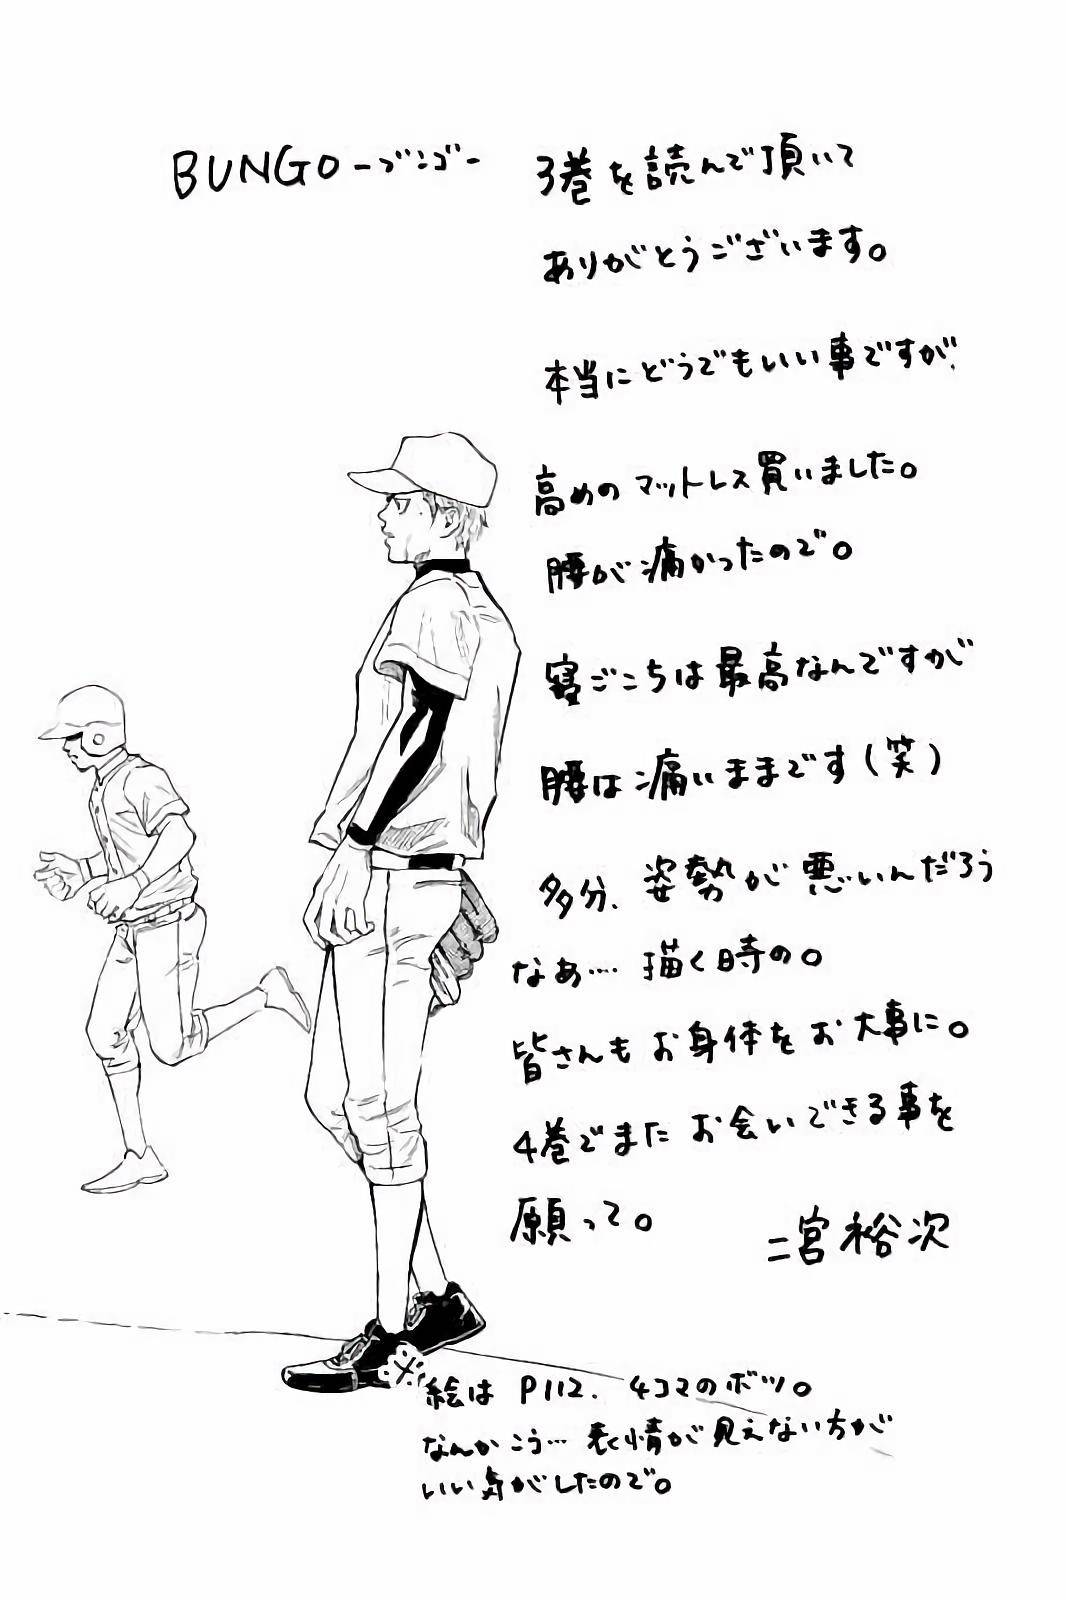 BUNGO-ブンゴ- 3巻を読んで頂いて
ありがとうございます。
本当にどうでもいい事ですが、
高めのマットレス買いました。
腰が痛かったので。
寝ごこちは最高なんですが
腰は痛いままです(笑)
多分、姿勢が悪いんだろう
なあ…. 描く時の。
皆さんもお身体をお大事に。
4巻でまたお会いできる事を
願って。
二宮裕次
※絵は P112. 4コマのボツ。
なんかこう… 表情が見えない方が
いい気がしたので。